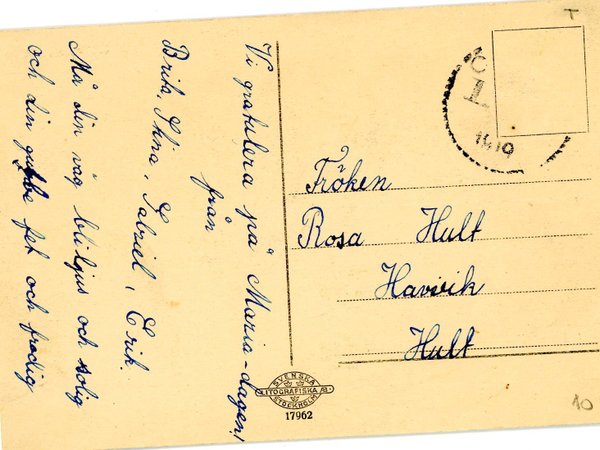 Vi gratulera på Maria-dagen!
från
Brita, Stina, Gabriel, Erik.
Må din väg bli ljus och solig
och din gubbe fet och frodig
Fröken
Rosa Hult
Havivik
Hult
1919
SVENSKA
LITOGRAFISKA AB
STOCKHOLM
17962
T
10